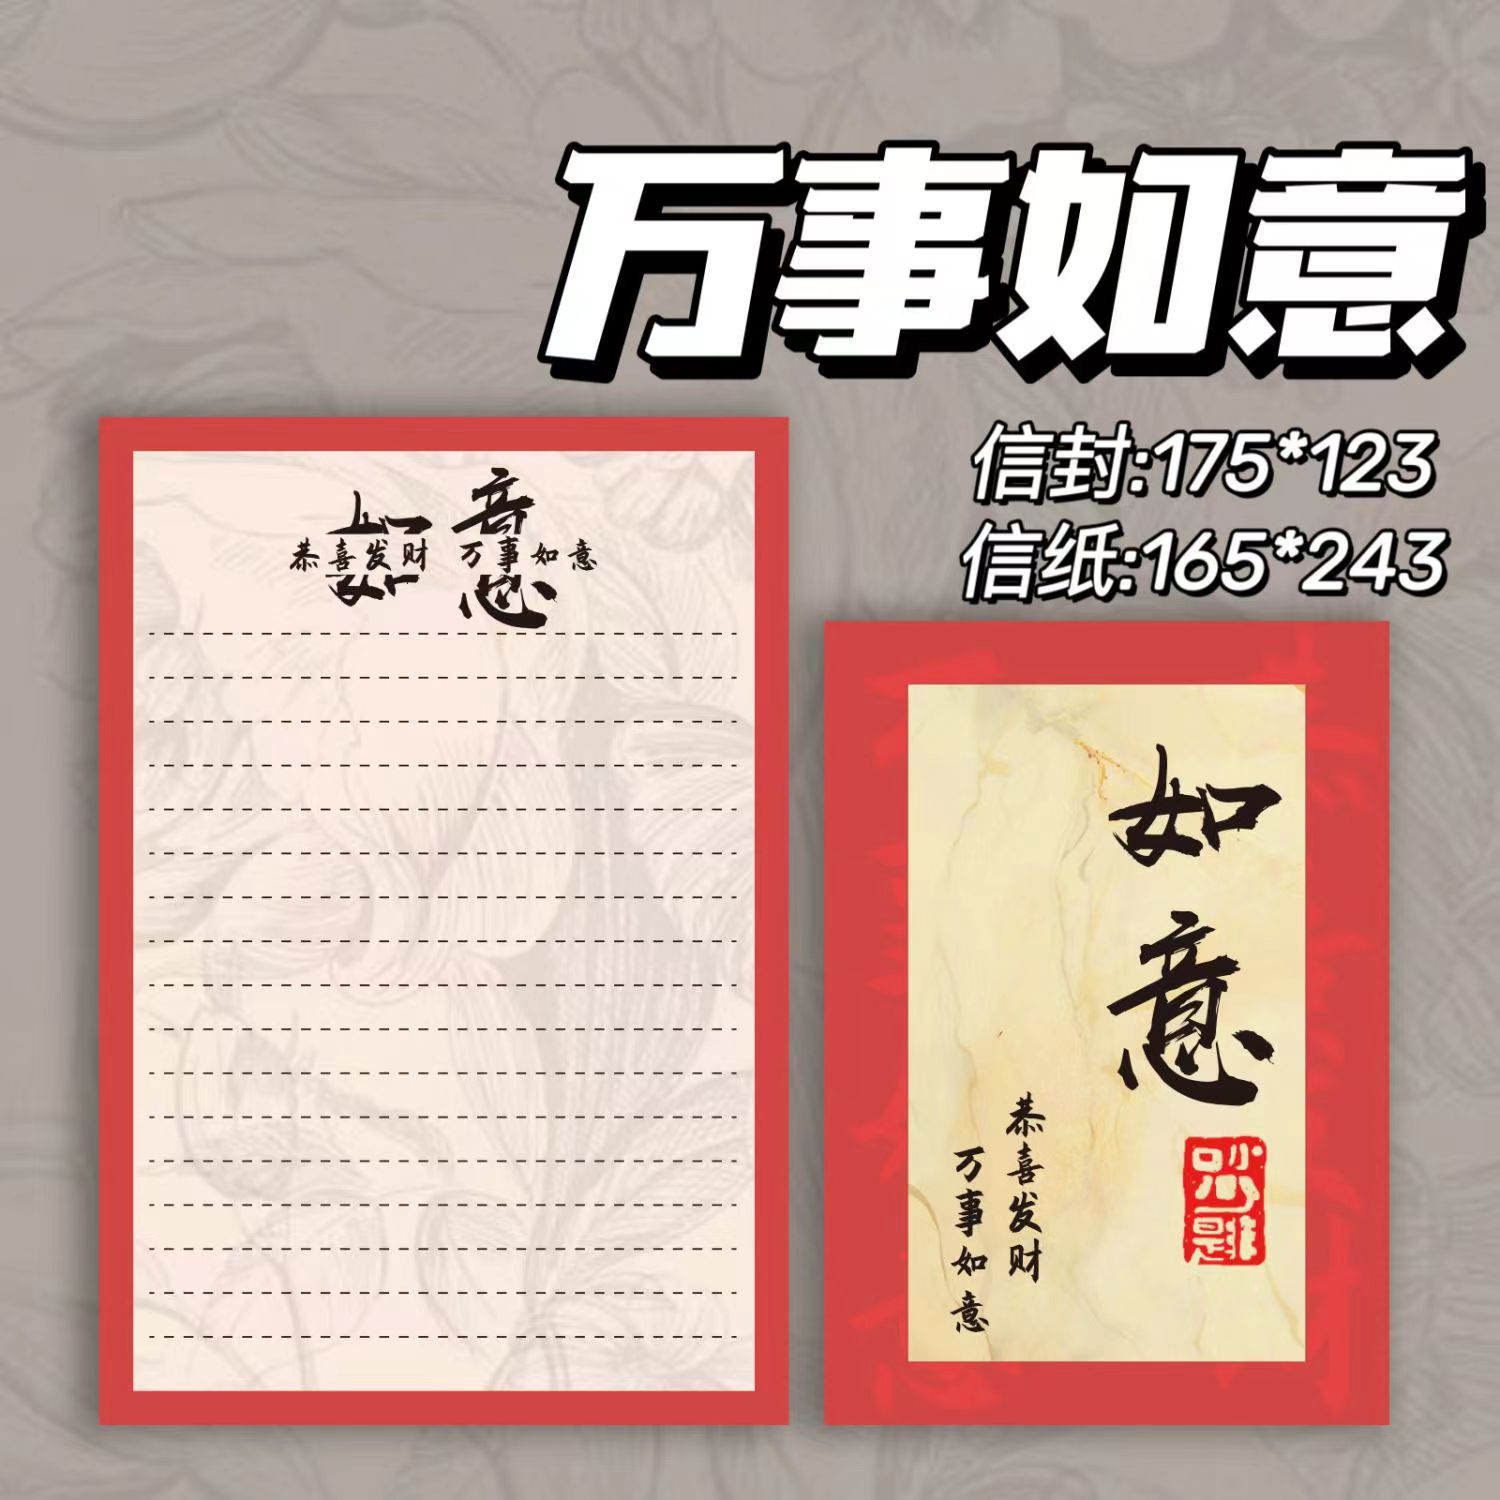 万事如意
信封:175*123
信纸:165*243
如意
恭喜发财 万事如意
如意
恭喜发财
万事如意